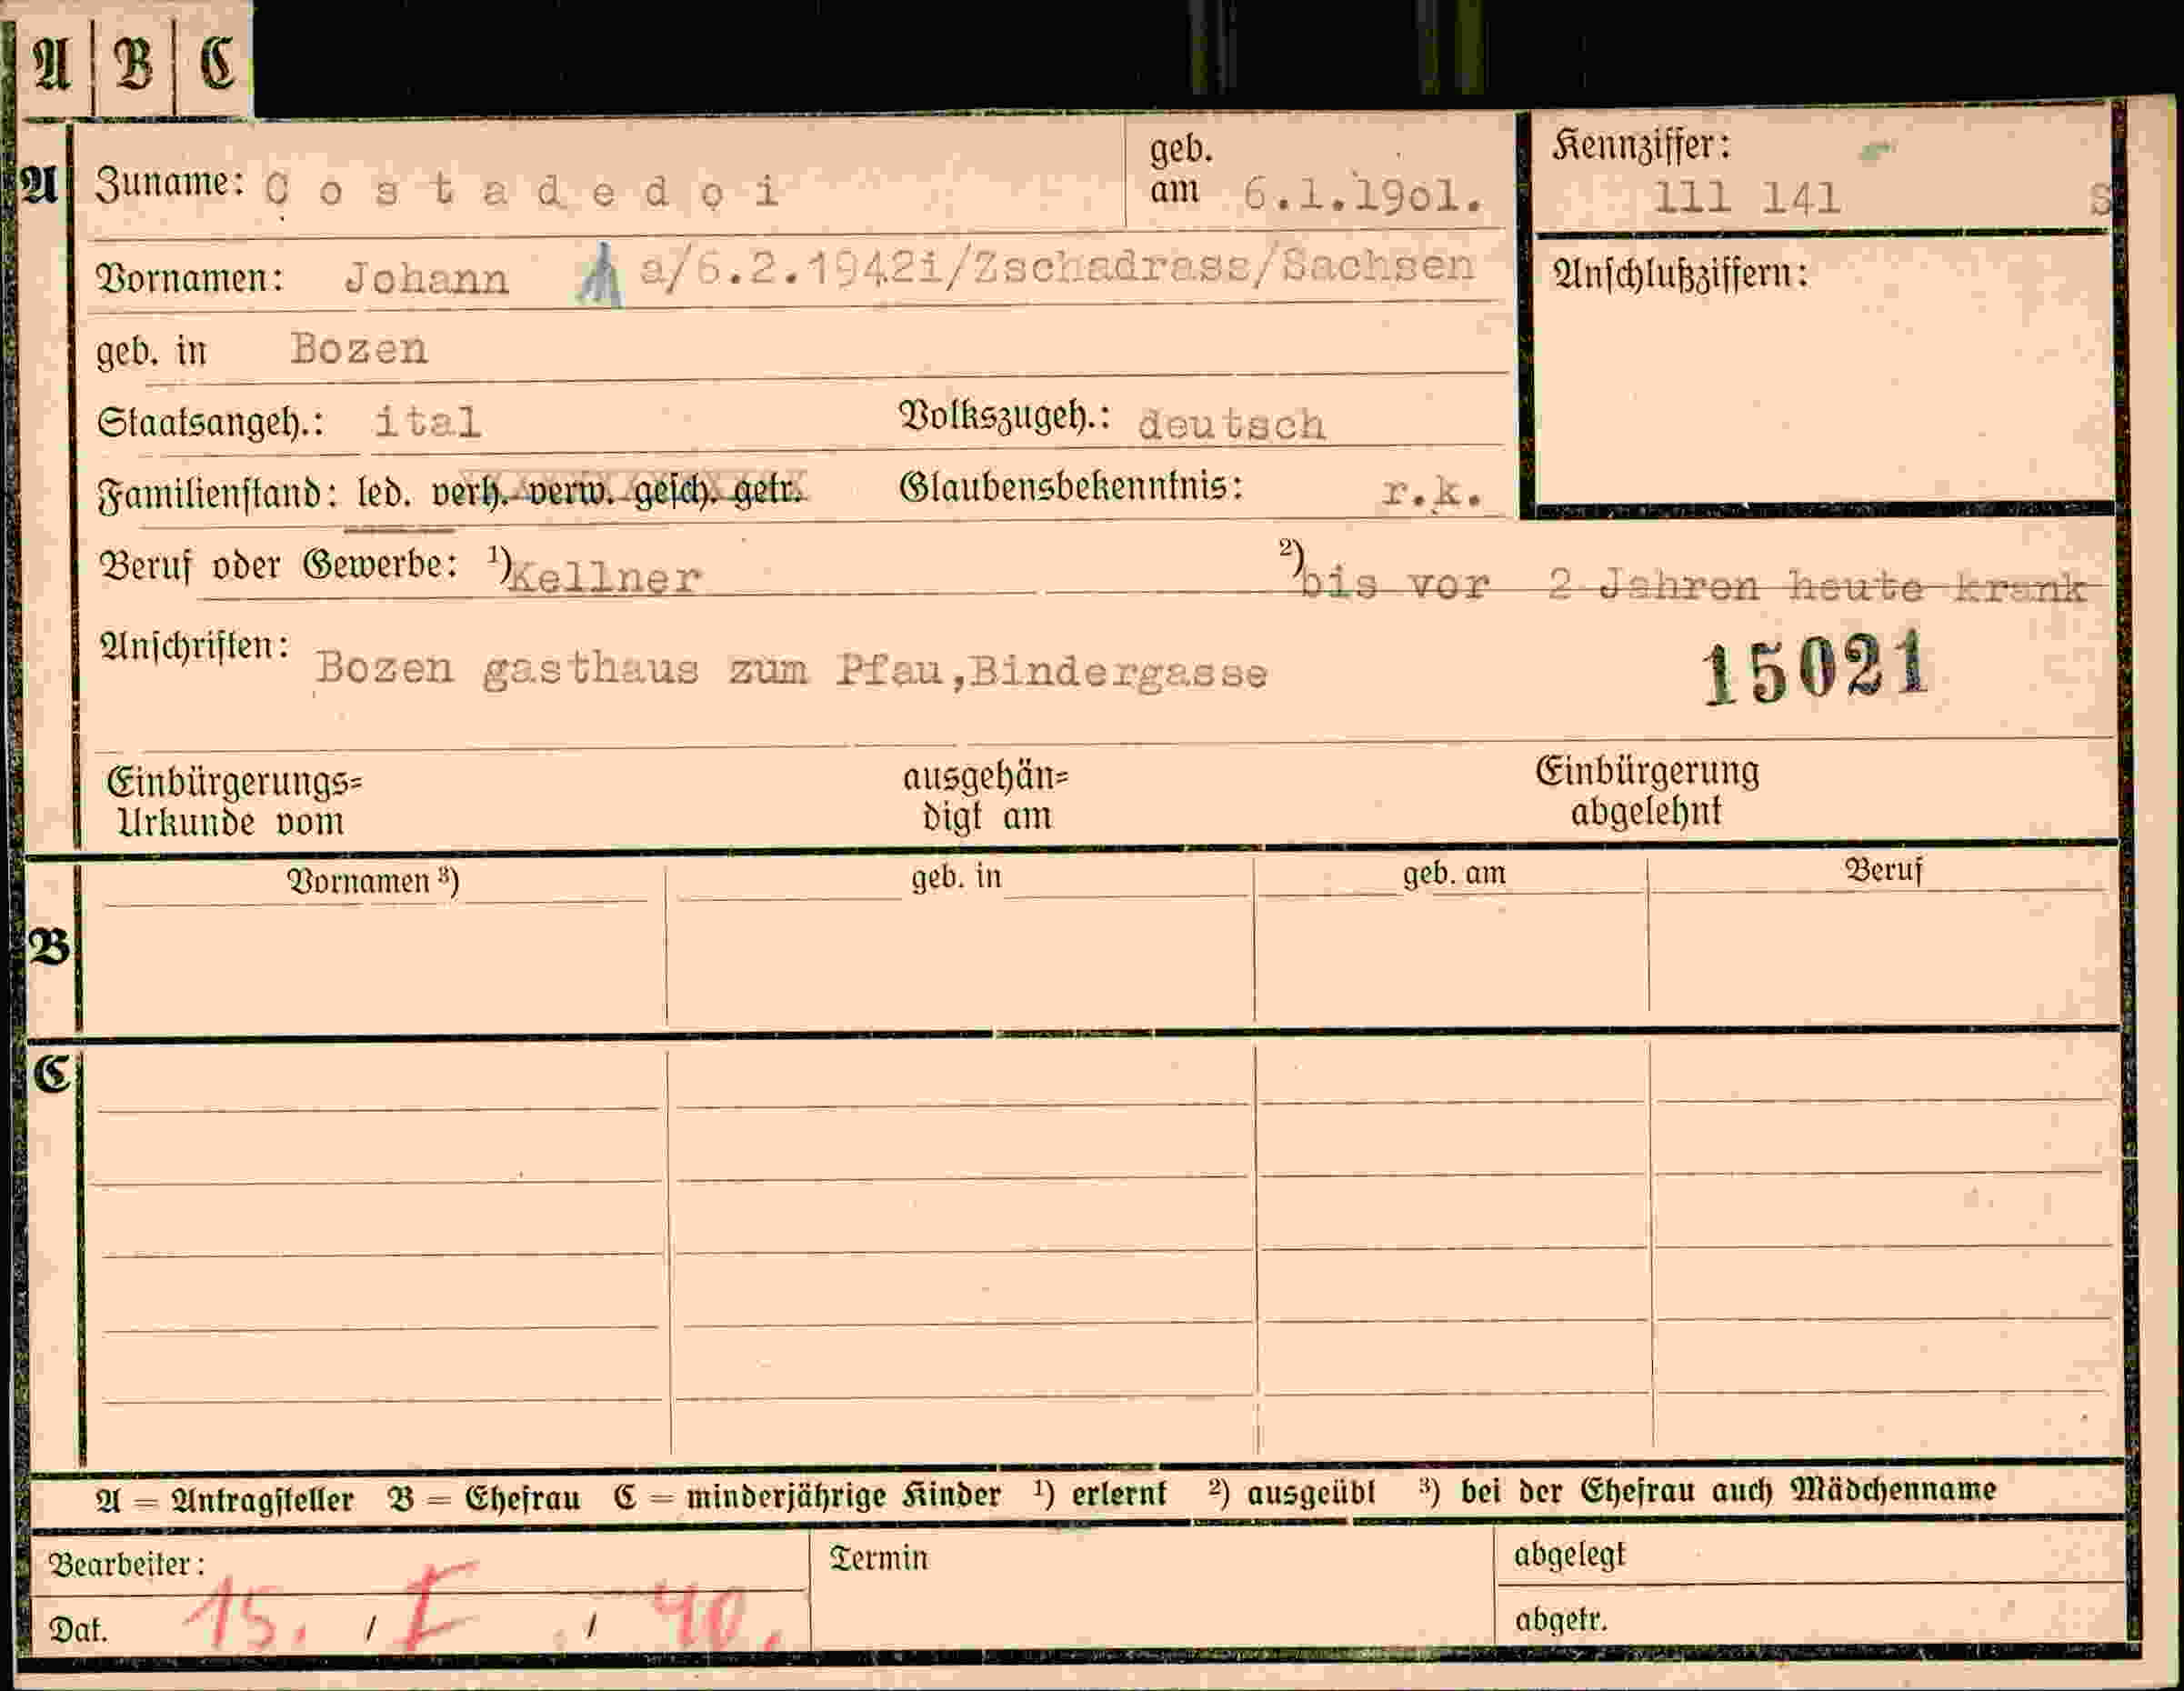 A | B | C
A Zuname: C o s t a d e d o i geb. am 6.1.19o1. Kennziffer: 111 141 S
Vornamen: Johann a/6.2.1942i/Zschadrass/Sachsen Anschlußziffern:
geb. in Bozen
Staatsangeh.: ital Volkszugeh.: deutsch
Familienstand: led. verh. verw. gesch. getr. Glaubensbekenntnis: r.k.
Beruf oder Gewerbe: ¹) Kellner ²) bis vor 2 Jahren heute krank
Anschriften: Bozen gasthaus zum Pfau,Bindergasse 15021
Einbürgerungs= ausgehän= Einbürgerung
Urkunde vom digt am abgelehnt
Vornamen ³) geb. in geb. am Beruf
B
C
A = Antragsteller B = Ehefrau C = minderjährige Kinder ¹) erlernt ²) ausgeübt ³) bei der Ehefrau auch Mädchenname
Bearbeiter: Termin abgelegt
Dat. 15. / I / 40. abgetr.